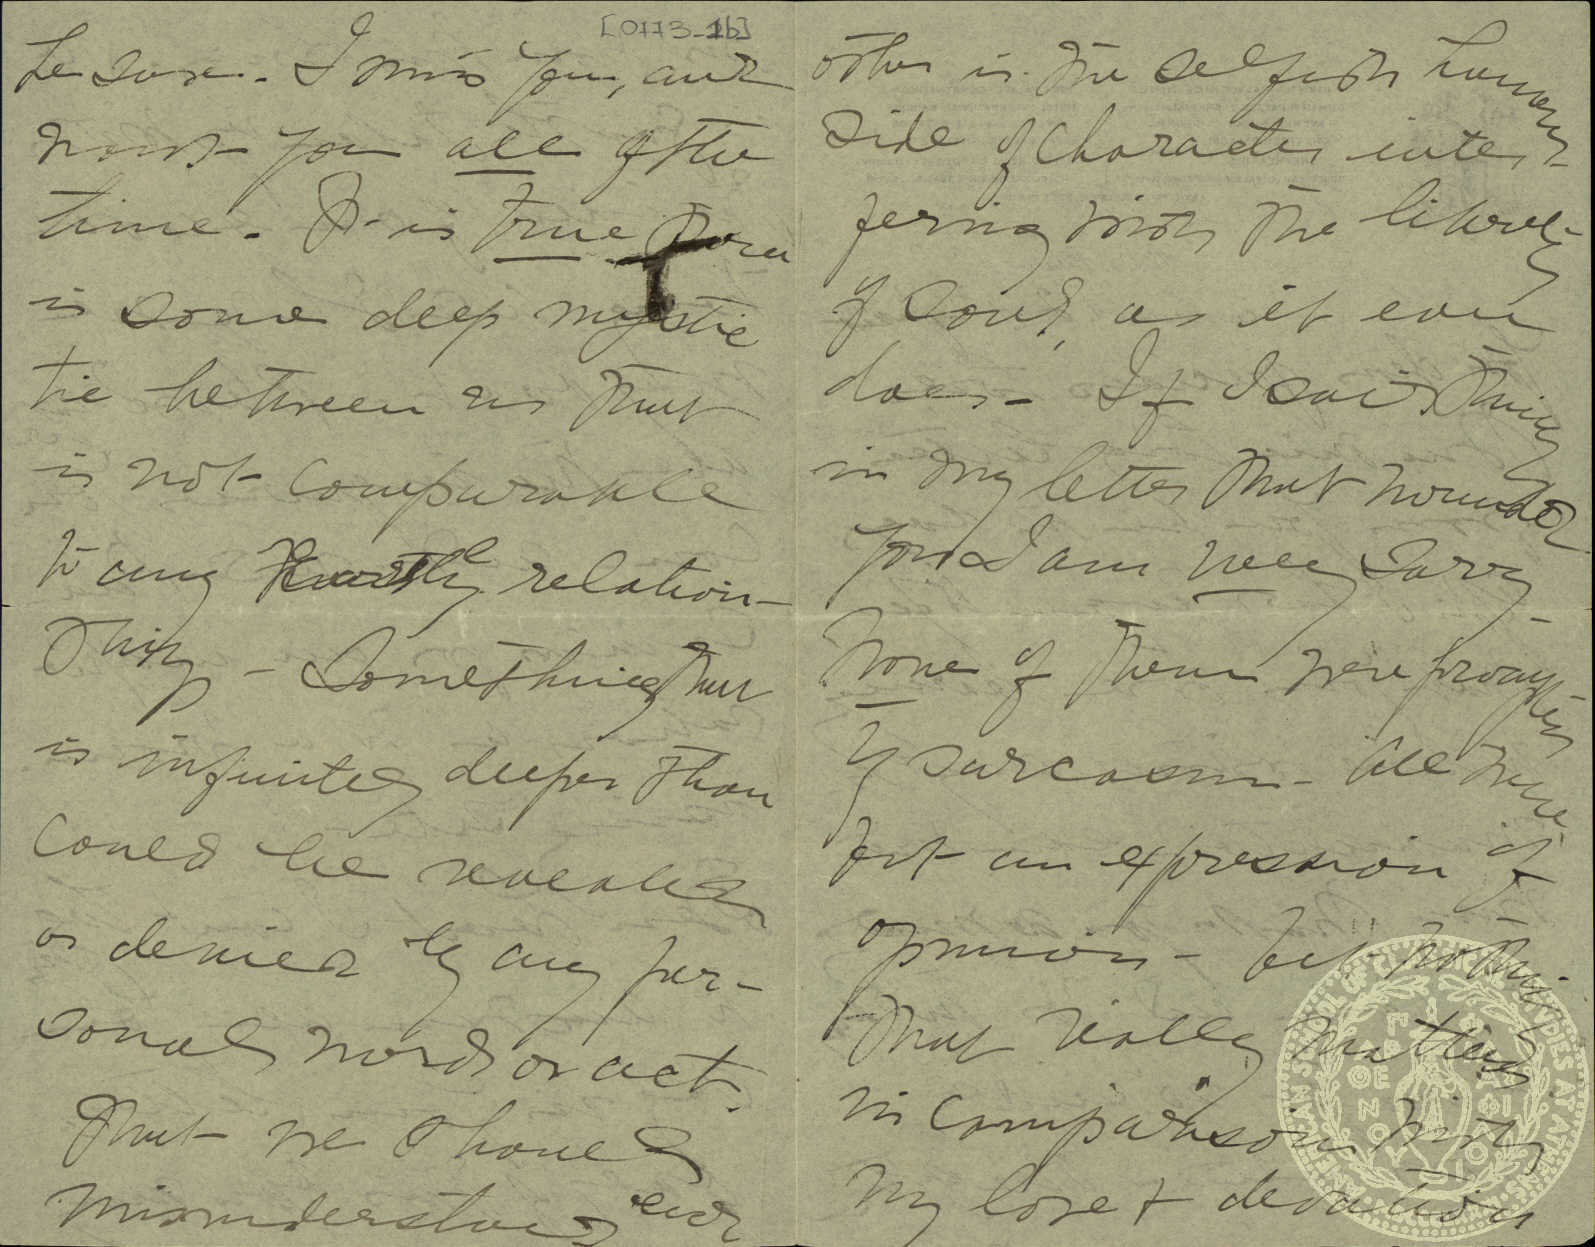 [0173_1b]
be sure. I miss you, and
want you all of the
time. It is true there
is some deep mystic
tie between us that
is not comparable
to any Earthly relation-
ship – Something that
is infinitely deeper than
could be revealed
or denied by any per-
sonal word or act.
That we should
misunderstand each
other is the selfish human
side of character inter-
fering with the liberty
of soul, as it ever
does – If I said things
in my letter that wounded
you I am very sorry –
None of them were prompted
by sarcasm – All were
but an expression of
opinion – but nothing
that really matters
in comparison with
my love & devotion
AMERICAN SCHOOL OF CLASSICAL STUDIES AT ATHENS
ΠΑΡΘΕΝΟΥ ΦΙΛΑΣ ΦΙΛΟΙ